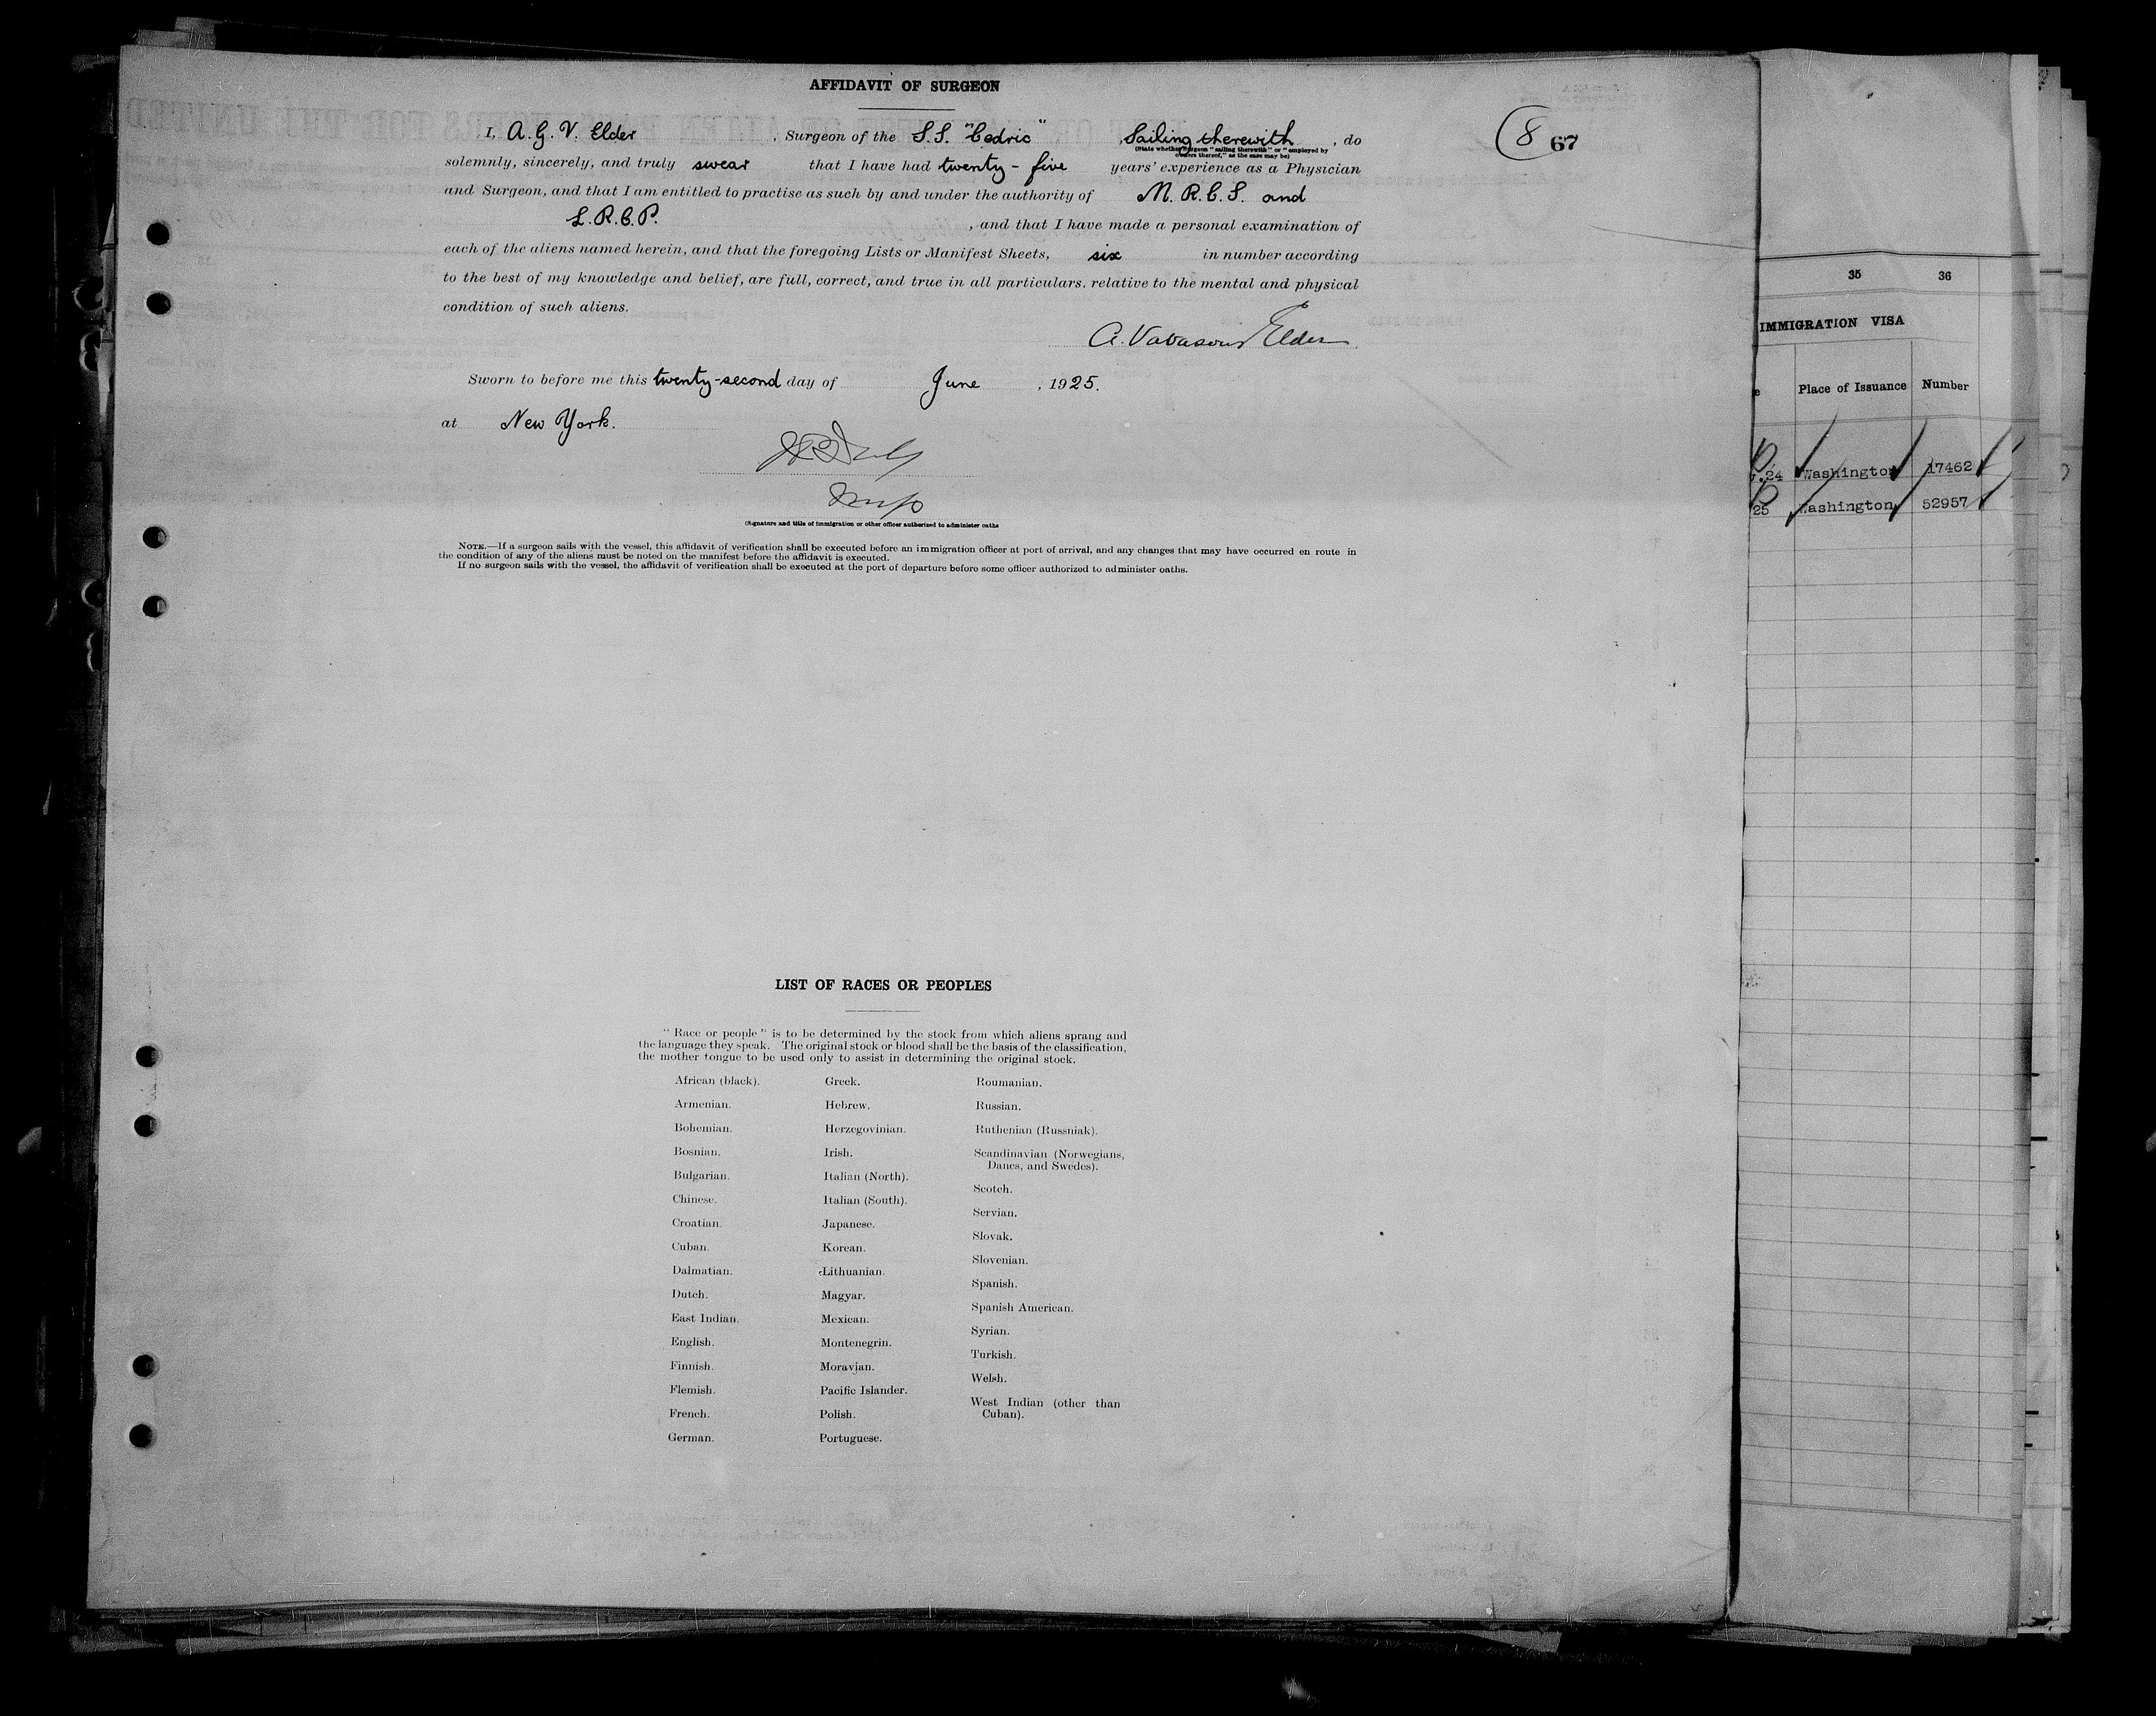 AFFIDAVIT OF SURGEON
I, A. G. V. Elder, Surgeon of the S.S. "Cedric" Sailing therewith, do
(State whether Surgeon "sailing therewith" or "employed by
owners thereof," as the case may be)
solemnly, sincerely, and truly swear that I have had twenty-five years' experience as a Physician
and Surgeon, and that I am entitled to practise as such by and under the authority of M. R. C. S. and
L. R. C. P. , and that I have made a personal examination of
each of the aliens named herein, and that the foregoing Lists or Manifest Sheets, six in number according
to the best of my knowledge and belief, are full, correct, and true in all particulars. relative to the mental and physical
condition of such aliens.
A. Vavasour Elder
Sworn to before me this twenty-second day of June, 1925.
at New York.
(Signature and title of immigration or other officer authorized to administer oaths
NOTE.—If a surgeon sails with the vessel, this affidavit of verification shall be executed before an immigration officer at port of arrival, and any changes that may have occurred en route in
the condition of any of the aliens must be noted on the manifest before the affidavit is executed.
If no surgeon sails with the vessel, the affidavit of verification shall be executed at the port of departure before some officer authorized to administer oaths.
8 67
LIST OF RACES OR PEOPLES
"Race or people" is to be determined by the stock from which aliens sprang and
the language they speak. The original stock or blood shall be the basis of the classification,
the mother tongue to be used only to assist in determining the original stock.
African (black).
Armenian.
Bohemian.
Bosnian.
Bulgarian.
Chinese.
Croatian.
Cuban.
Dalmatian.
Dutch.
East Indian.
English.
Finnish.
Flemish.
French.
German.
Greek.
Hebrew.
Herzegovinian.
Irish.
Italian (North).
Italian (South).
Japanese.
Korean.
Lithuanian.
Magyar.
Mexican.
Montenegrin.
Moravian.
Pacific Islander.
Polish.
Portuguese.
Roumanian.
Russian.
Ruthenian (Russniak).
Scandinavian (Norwegians,
Danes, and Swedes).
Scotch.
Servian.
Slovak.
Slovenian.
Spanish.
Spanish American.
Syrian.
Turkish.
Welsh.
West Indian (other than
Cuban).
35 36
IMMIGRATION VISA
Place of Issuance Number
24 Washington 17462
25 Washington 52957